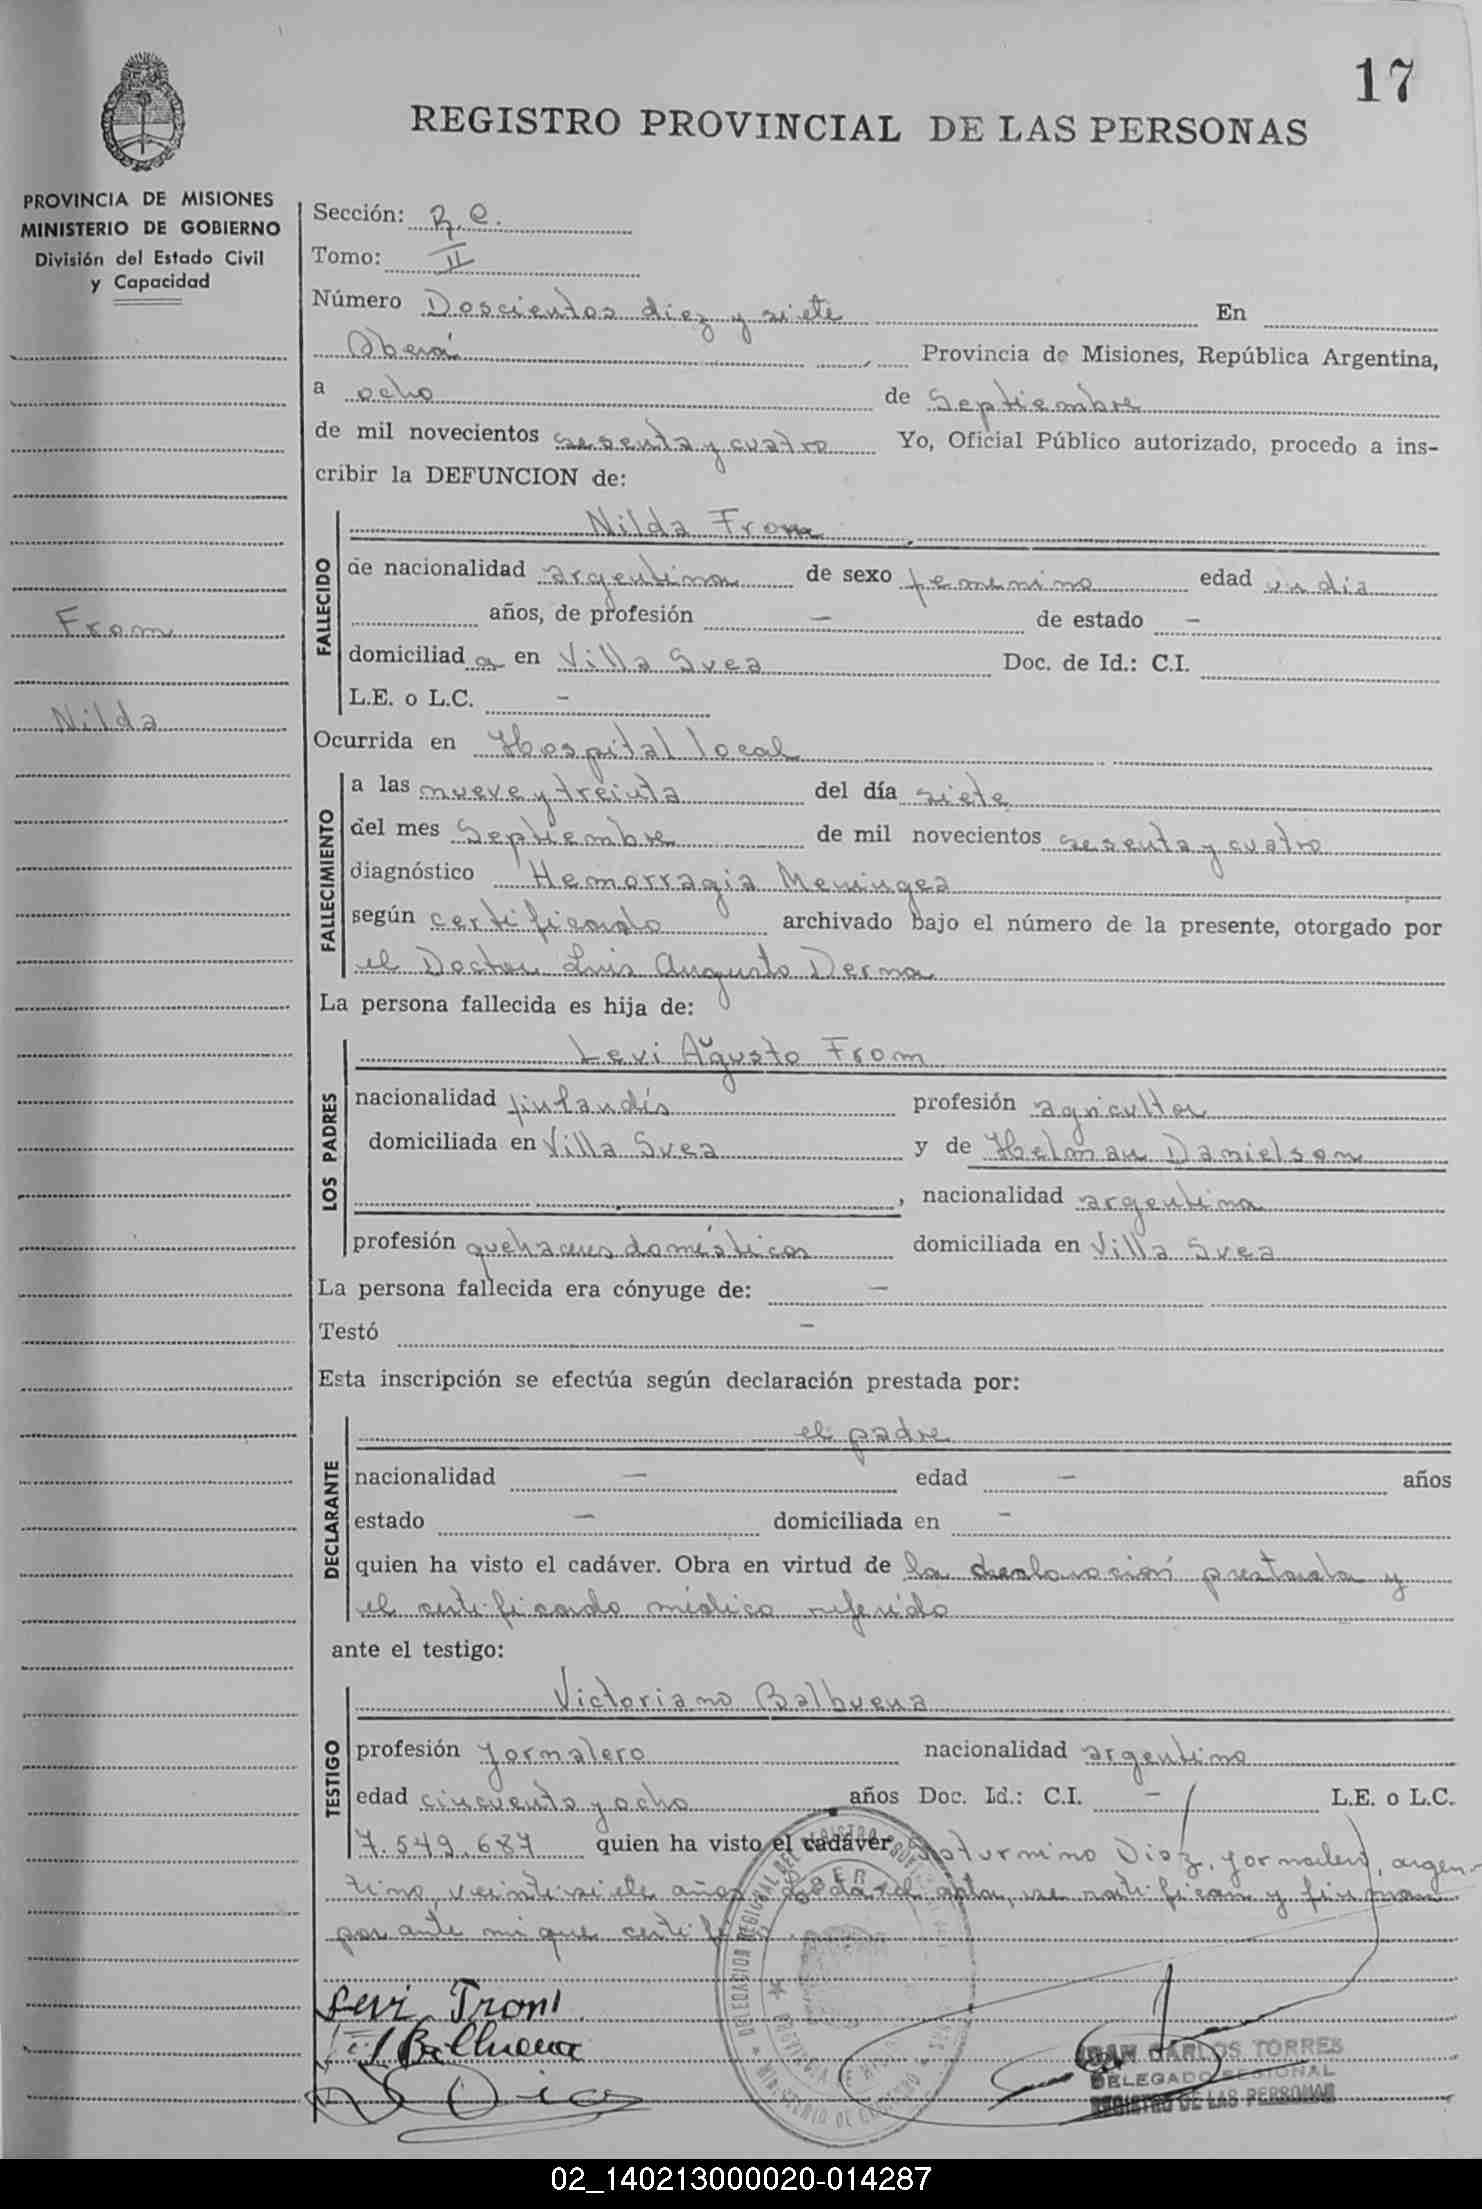 17
REGISTRO PROVINCIAL DE LAS PERSONAS
PROVINCIA DE MISIONES
MINISTERIO DE GOBIERNO
División del Estado Civil
y Capacidad
From
Nilda
Sección: R. C.
Tomo: II
Número Doscientos diez y siete En
Oberá Provincia de Misiones, República Argentina,
a ocho de Septiembre
de mil novecientos sesenta y cuatro Yo, Oficial Público autorizado, procedo a ins-
cribir la DEFUNCION de:
FALLECIDO
Nilda From
de nacionalidad argentina de sexo femenino edad un dia
años, de profesión – de estado –
domiciliad a en Villa Svea Doc. de Id.: C.I.
L.E. o L.C. –
Ocurrida en Hospital local
FALLECIMIENTO
a las nueve y treinta del día siete
del mes Septiembre de mil novecientos sesenta y cuatro
diagnóstico Hemorragia Meningea
según certificado archivado bajo el número de la presente, otorgado por
el Doctor Luis Augusto Derna
La persona fallecida es hija de:
LOS PADRES
Levi Agusto From
nacionalidad finlandés profesión agricultor
domiciliada en Villa Svea y de Helman Danielson
, nacionalidad argentina
profesión quehaceres domésticos domiciliada en Villa Svea
La persona fallecida era cónyuge de: –
Testó –
Esta inscripción se efectúa según declaración prestada por:
DECLARANTE
el padre
nacionalidad – edad – años
estado – domiciliada en –
quien ha visto el cadáver. Obra en virtud de la declaración prestada y
el certificado médico referido
ante el testigo:
TESTIGO
Victoriano Balbuena
profesión Jornalero nacionalidad argentino
edad cincuenta y ocho años Doc. Id.: C.I. – L.E. o L.C.
7.549.687 quien ha visto el cadáver Saturnino Diaz, jornalero, argen-
tino, veintisiete años. Leída el acta, se ratifican y firman
por ante mi que certifico.
Levi From
Balbuena
S Diaz
JUAN CARLOS TORRES
DELEGADO REGIONAL
REGISTRO DE LAS PERSONAS
02_140213000020-014287